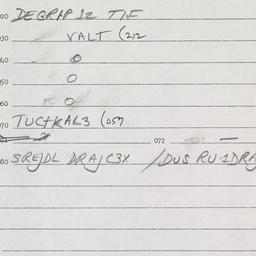 020 DEGRAP 12 TIF
030 VALT (212
040 0
050 0
060 0
070 TUCTKAL3 (057
072
080 SREJDL DRAJC3X /DUS RU·1DRA